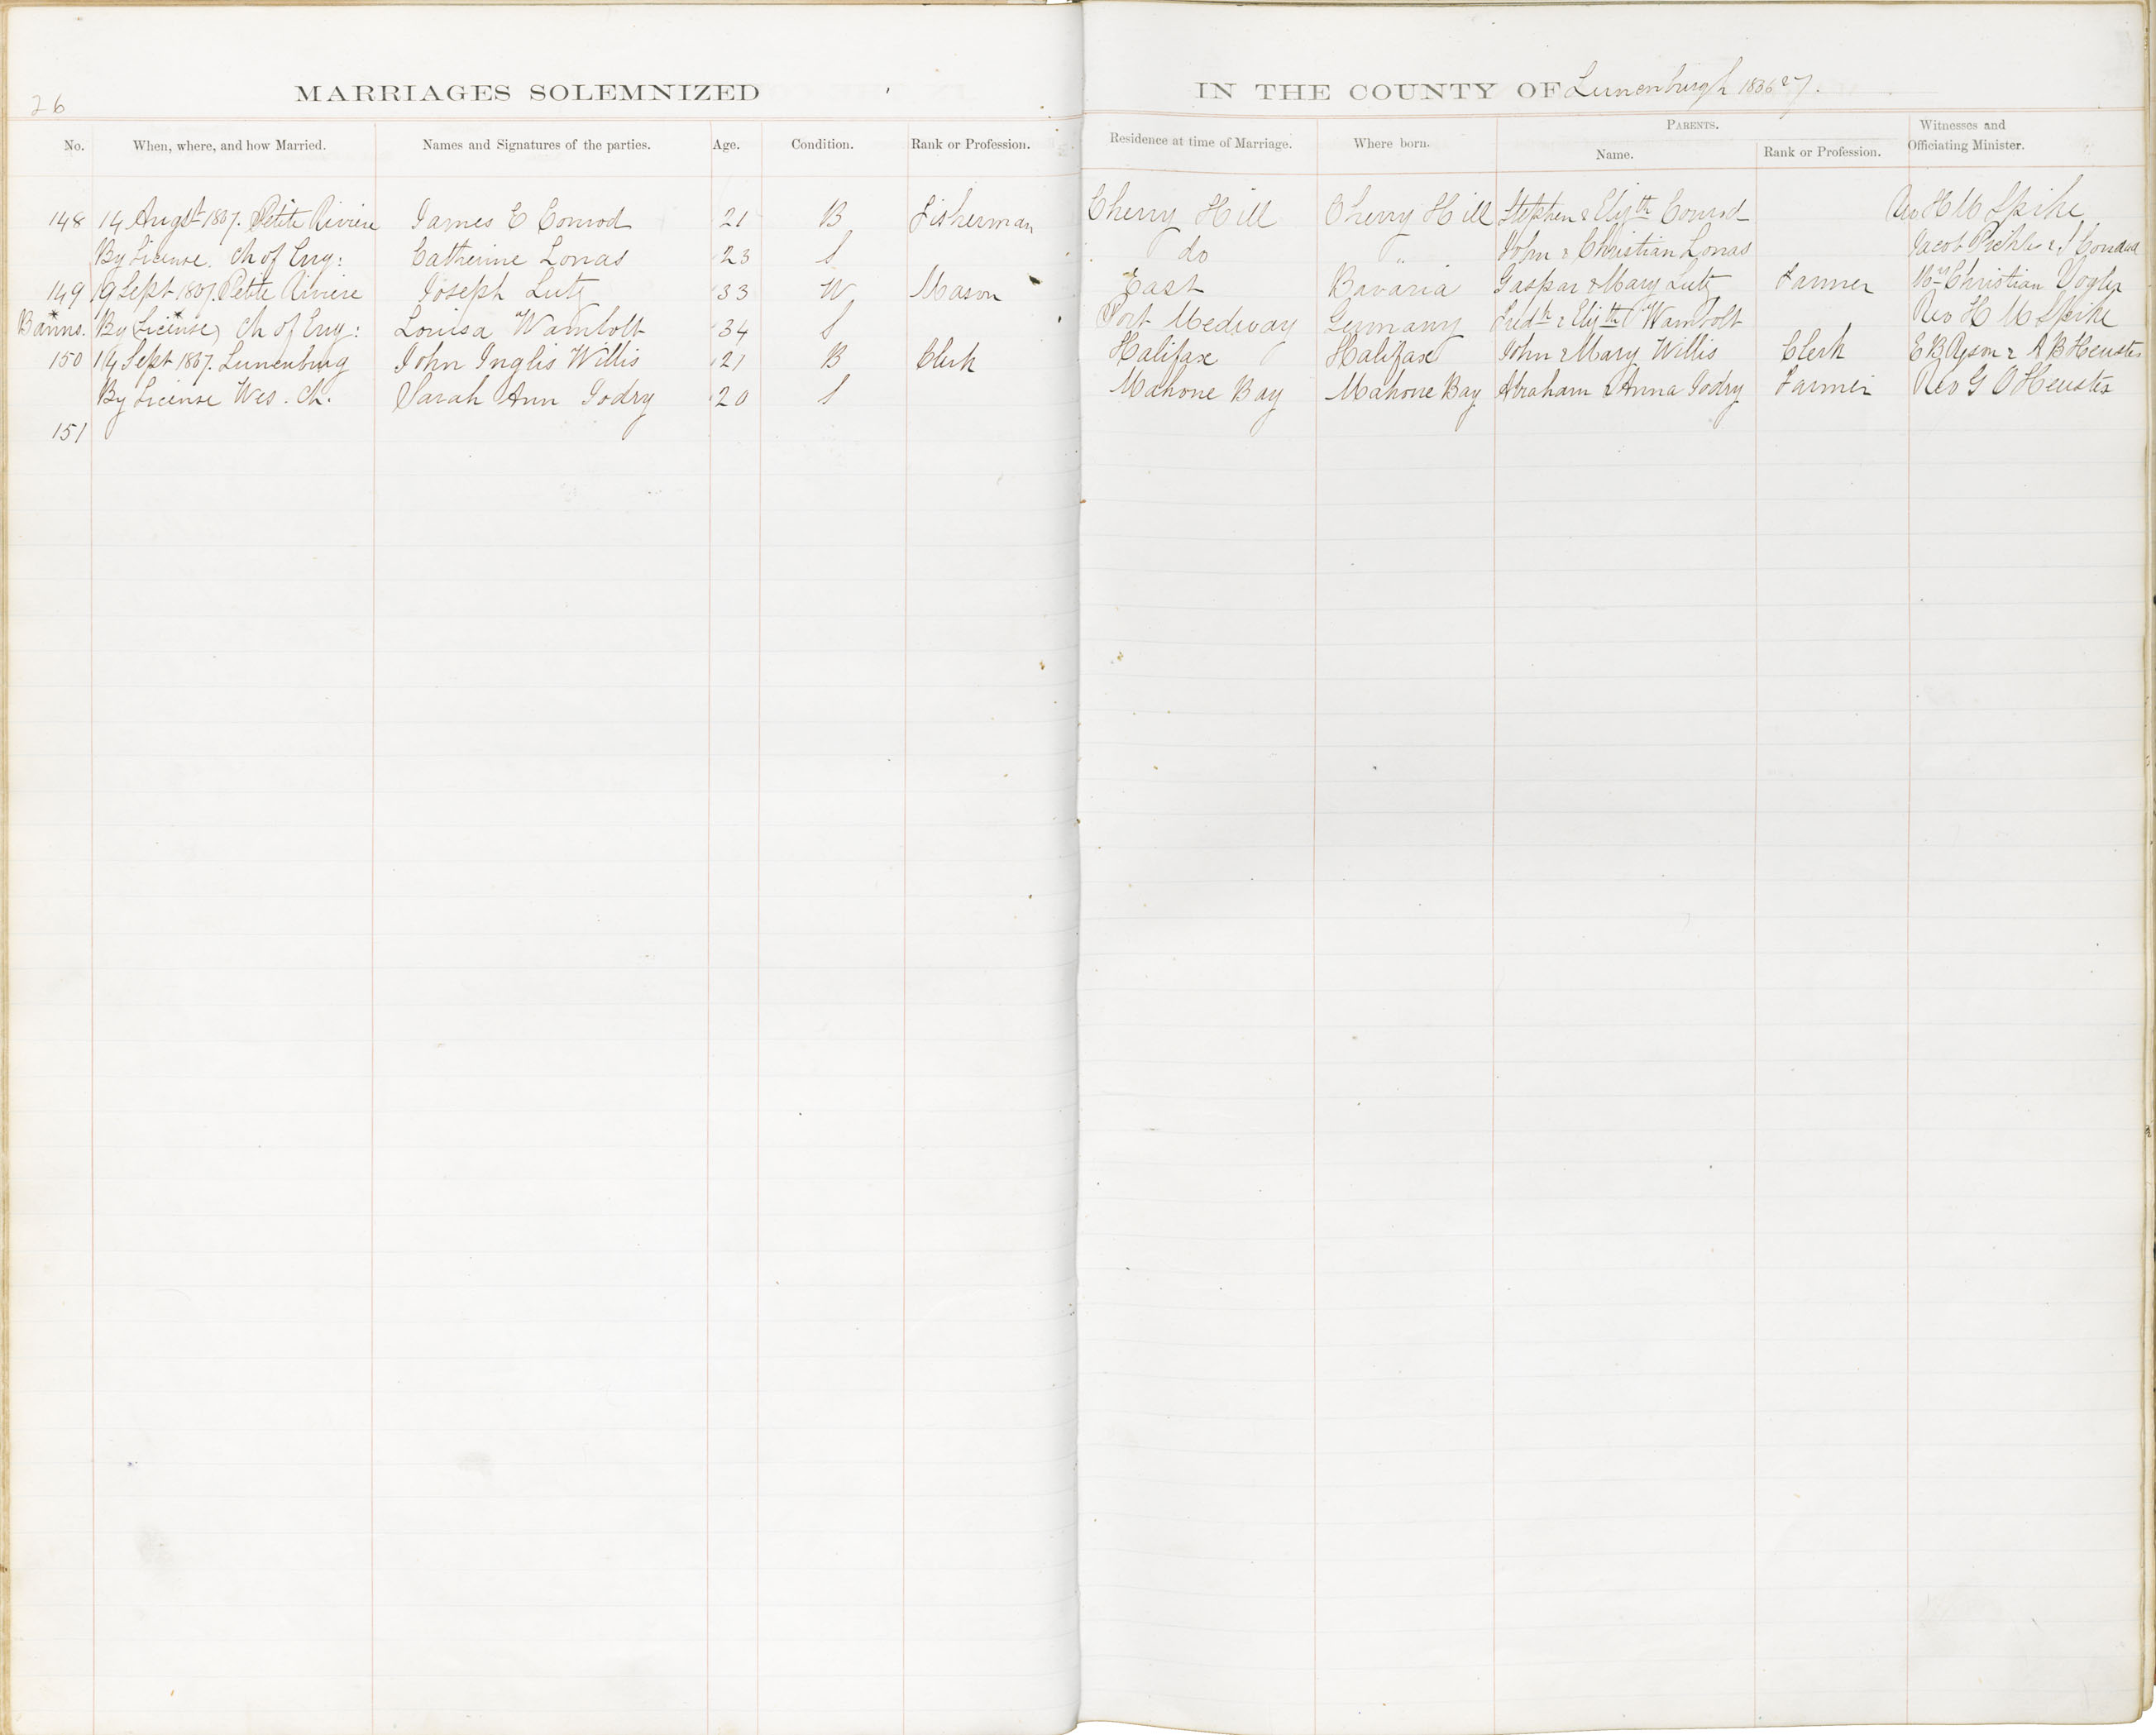 26
MARRIAGES SOLEMNIZED IN THE COUNTY OF Lunenburgh 1866 & 7.
No. When, where, and how Married. Names and Signatures of the parties. Age. Condition. Rank or Profession. Residence at time of Marriage. Where born. PARENTS. Name. Rank or Profession. Witnesses and Officiating Minister.
148 14 Augst 1867. Petite Riviere James E Conrod 21 B Fisherman Cherry Hill Cherry Hill Stephen & Elizth Conrod Rev H M Spike
By License. Ch of Eng: Catherine Lonas 23 S do " John & Christian Lonas Jacob &
149 19 Sept 1867. Petite Riviere Joseph Lutz 33 W Mason East Bavaria Gaspar & Mary Lutz Farmer Christian Vogler
Banns. By (License) Ch of Eng: Louisa Wambolt 34 S Port Medway Germany Fredk & Elizth Wambolt Rev H M Spike
150 14 Sept 1867. Lunenburg John Inglis Willis 21 B Clerk Halifax Halifax John & Mary Willis Clerk & A B Heustis
By License Wes. Ch. Sarah Ann Jodry 20 S Mahone Bay Mahone Bay Abraham & Anna Jodry Farmer Rev G O Heustis
151